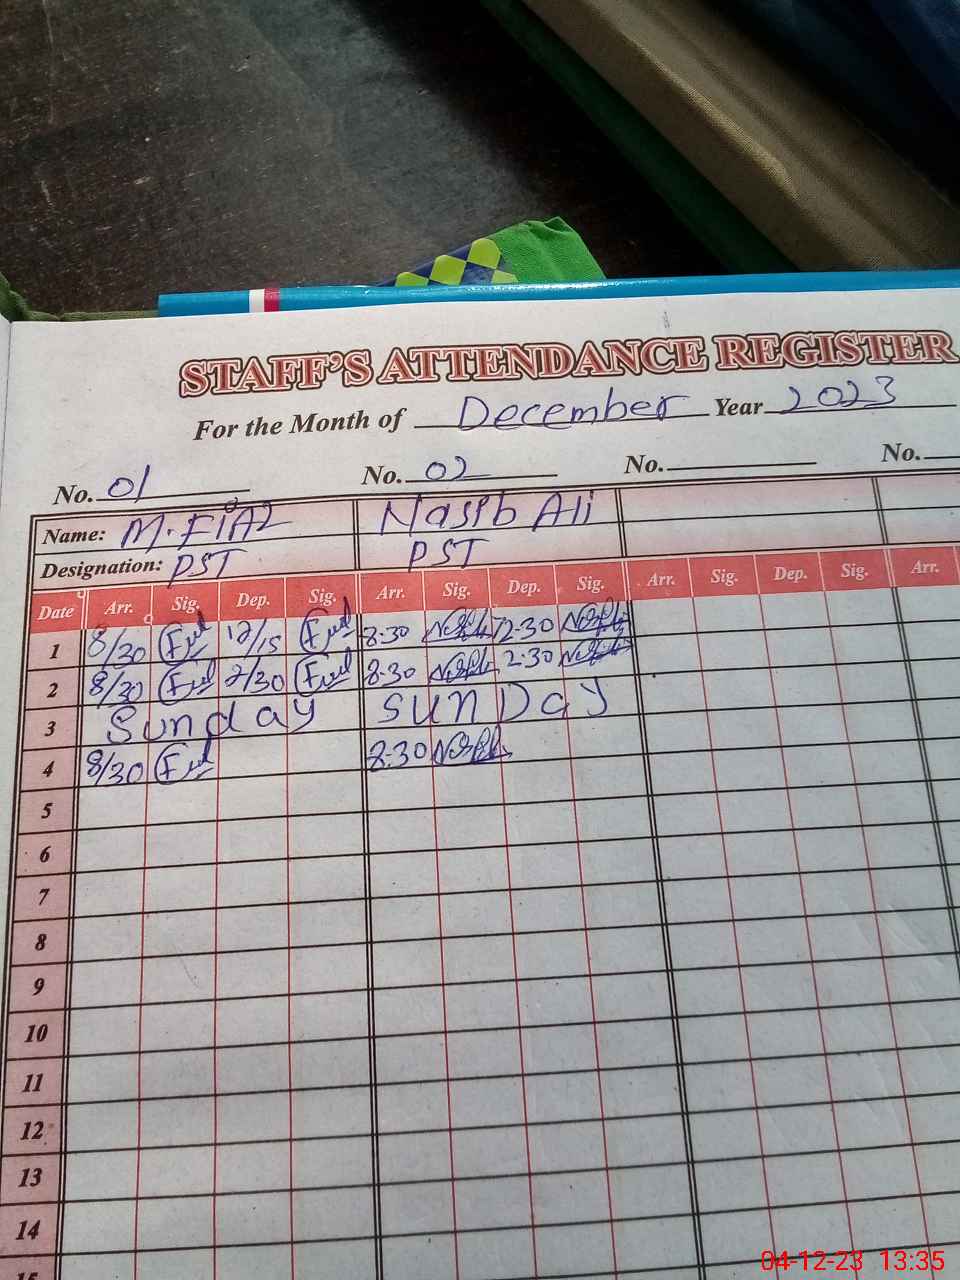 STAFF'S ATTENDANCE REGISTER
For the Month of December Year 2023
No. 01 No. 02 No. No.
Name: M. FIAZ Nasib Ali
Designation: PST PST
Date Arr. Sig. Dep. Sig. Arr. Sig. Dep. Sig. Arr. Sig. Dep. Sig. Arr.
1 8/30 12/15 8.30 12.30
2 8/30 2/30 8.30 2.30
3 Sunday SUNDay
4 8/30 8.30
5
6
7
8
9
10
11
12
13
14
15
04-12-23 13:35